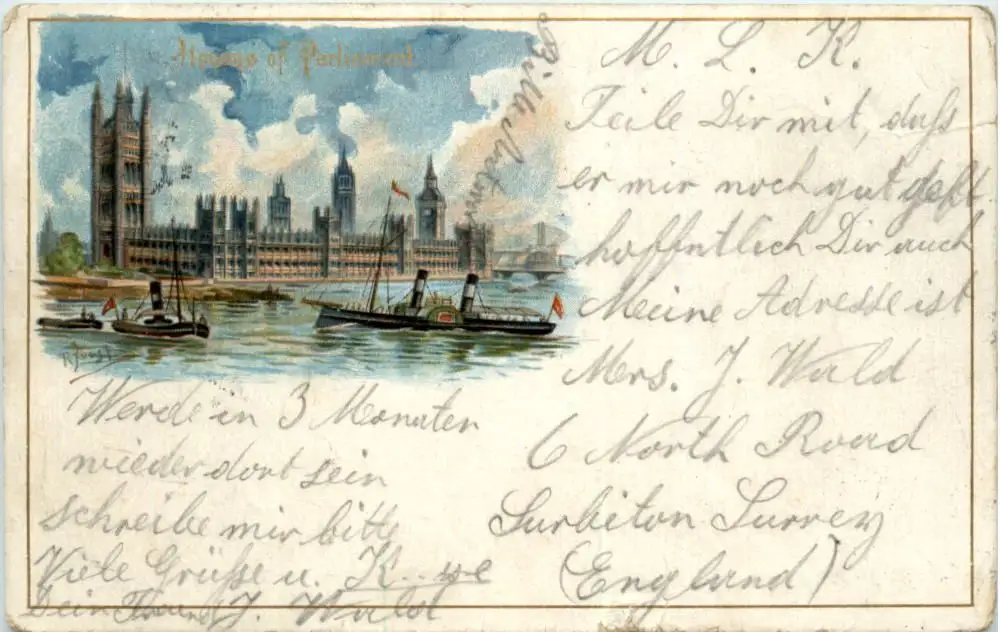 Houses of Parliament
M. L. K.
Teile Dir mit, daß
er mir noch gut geht
hoffntlich Dir auch
Meine Adresse ist
Mrs. J. Wald
6 North Road
Surbiton Surrey
(England)
Werde in 3 Monaten
wieder dort sein
schreibe mir bitte
Viele Grüße u. K...sse
Dein Freund J. Wald
Bitte Antwort